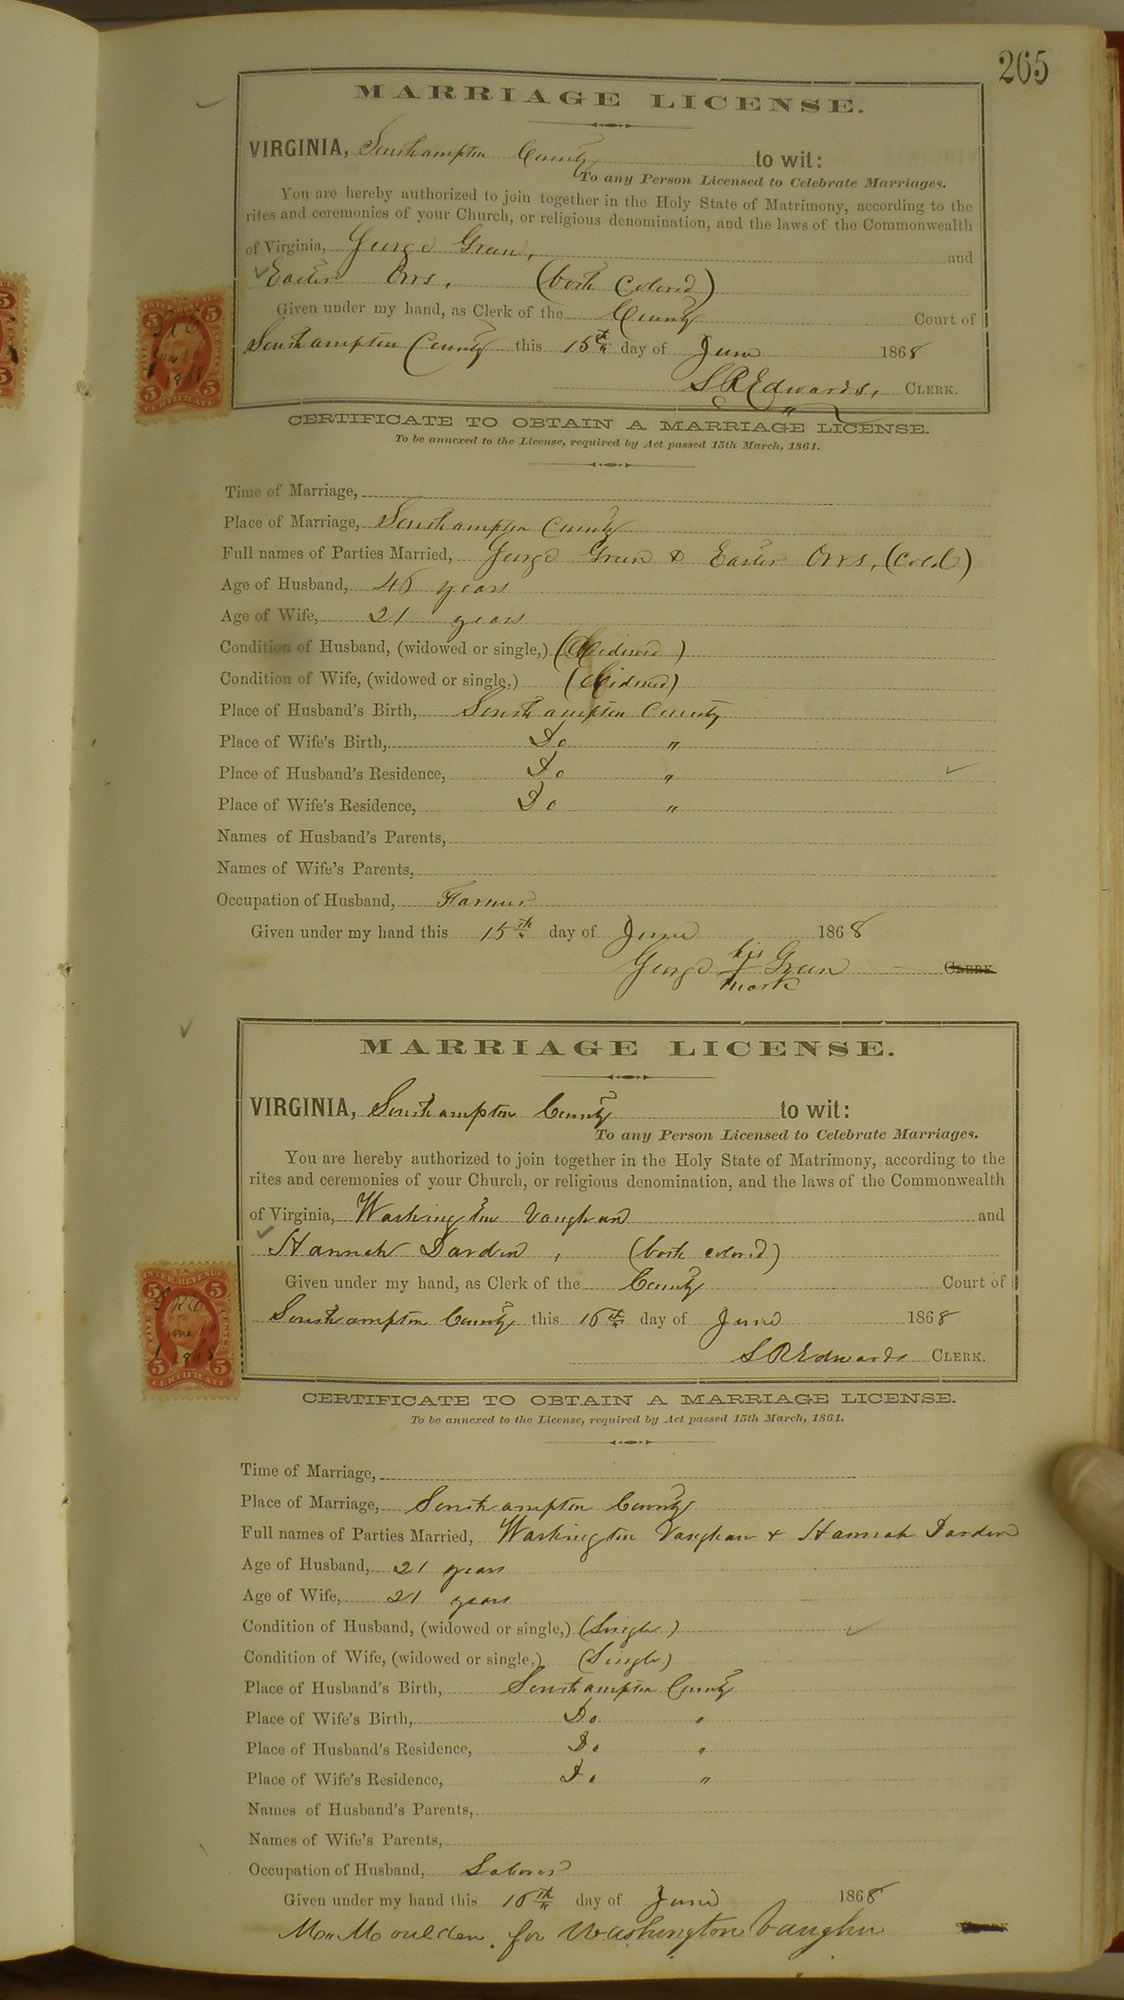 265
MARRIAGE LICENSE.
VIRGINIA, Southampton County to wit:
To any Person Licensed to Celebrate Marriages.
You are hereby authorized to join together in the Holy State of Matrimony, according to the
rites and ceremonies of your Church, or religious denomination, and the laws of the Commonwealth
of Virginia, George Green, and
Easter Orrs, (both Colored)
Given under my hand, as Clerk of the County Court of
Southampton County this 15th day of June 1868
S R Edwards, CLERK.
CERTIFICATE TO OBTAIN A MARRIAGE LICENSE.
To be annexed to the License, required by Act passed 15th March, 1861.
Time of Marriage,
Place of Marriage, Southampton County
Full names of Parties Married, George Green & Easter Orrs, (Cold)
Age of Husband, years
Age of Wife, 21 years
Condition of Husband, (widowed or single,) (Widowed)
Condition of Wife, (widowed or single,) (Widowed)
Place of Husband's Birth, Southampton County
Place of Wife's Birth, Do "
Place of Husband's Residence, Do "
Place of Wife's Residence, Do "
Names of Husband's Parents,
Names of Wife's Parents,
Occupation of Husband, Farmer
Given under my hand this 15th day of June 1868
his
George + Green CLERK
mark
MARRIAGE LICENSE.
VIRGINIA, Southampton County to wit:
To any Person Licensed to Celebrate Marriages.
You are hereby authorized to join together in the Holy State of Matrimony, according to the
rites and ceremonies of your Church, or religious denomination, and the laws of the Commonwealth
of Virginia, Washington Vaughan and
Hannah Darden, (both colored)
Given under my hand, as Clerk of the County Court of
Southampton County this 16th day of June 1868
S R Edwards CLERK.
CERTIFICATE TO OBTAIN A MARRIAGE LICENSE.
To be annexed to the License, required by Act passed 15th March, 1861.
Time of Marriage,
Place of Marriage, Southampton County
Full names of Parties Married, Washington Vaughan & Hannah Darden
Age of Husband, 21 years
Age of Wife, 21 years
Condition of Husband, (widowed or single,) (Single)
Condition of Wife, (widowed or single,) (Single)
Place of Husband's Birth, Southampton County
Place of Wife's Birth, Do "
Place of Husband's Residence, Do "
Place of Wife's Residence, Do "
Names of Husband's Parents,
Names of Wife's Parents,
Occupation of Husband, Laborer
Given under my hand this 16th day of June 1868
Moulden. for Washington Vaughn